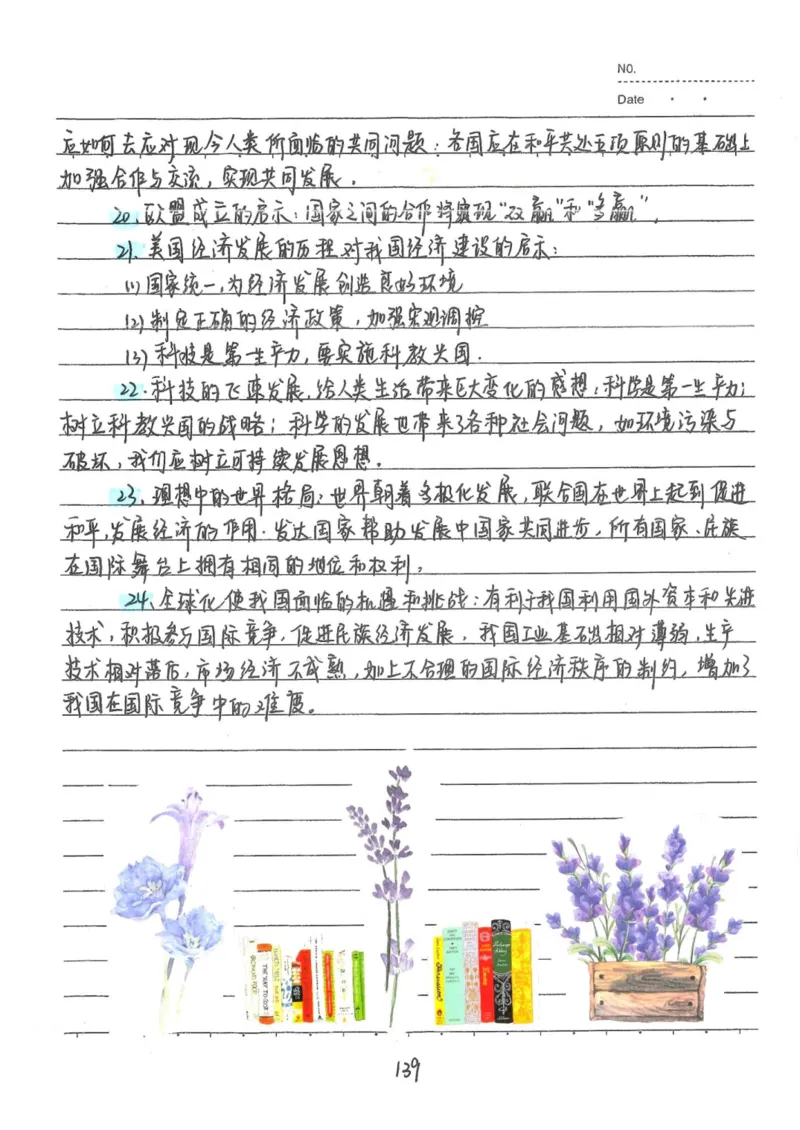 NO.
Date
应如何去应对现今人类所面临的共同问题：各国应在和平共处五项原则的基础上
加强合作与交流，实现共同发展．
20、欧盟成立的启示：国家之间的合作将实现“双赢”和“多赢”。
21、美国经济发展的历程对我国经济建设的启示：
(1)国家统一，为经济发展创造良好环境
(2)制定正确的经济政策，加强宏观调控
(3)科技是第一生产力，要实施科教兴国．
22．科技的飞速发展，给人类生活带来巨大变化的感想：科学是第一生产力；
树立科教兴国的战略；科学的发展也带来了各种社会问题，如环境污染与
破坏，我们应树立可持续发展思想．
23、理想中的世界格局：世界朝着多极化发展，联合国在世界上起到促进
和平，发展经济的作用．发达国家帮助发展中国家共同进步，所有国家、民族
在国际舞台上拥有相同的地位和权利。
24、全球化使我国面临的机遇和挑战：有利于我国利用国外资本和先进
技术，积极参与国际竞争，促进民族经济发展，我国工业基础相对薄弱，生产
技术相对落后，市场经济不成熟，加上不合理的国际经济秩序的制约，增加了
我国在国际竞争中的难度。
139